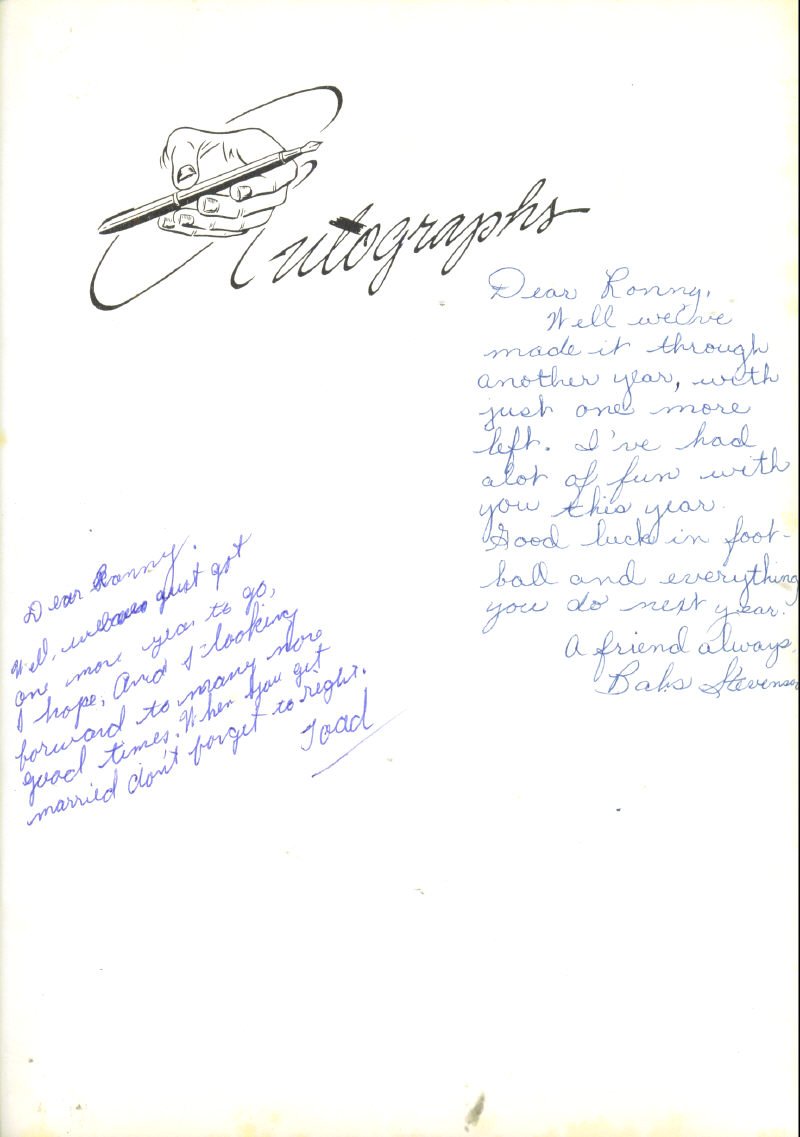 Autographs
Dear Ronny,
Well we've
made it through
another year, with
just one more
left. I've had
alot of fun with
you this year.
Good luck in foot-
ball and everything
you do next year.
A friend always,
Babs Stevenson
Dear Ronny,
Well, just got
one more year to go,
I hope. And I looking
forward to many more
good times. When you get
married don't forget to right.
Toad